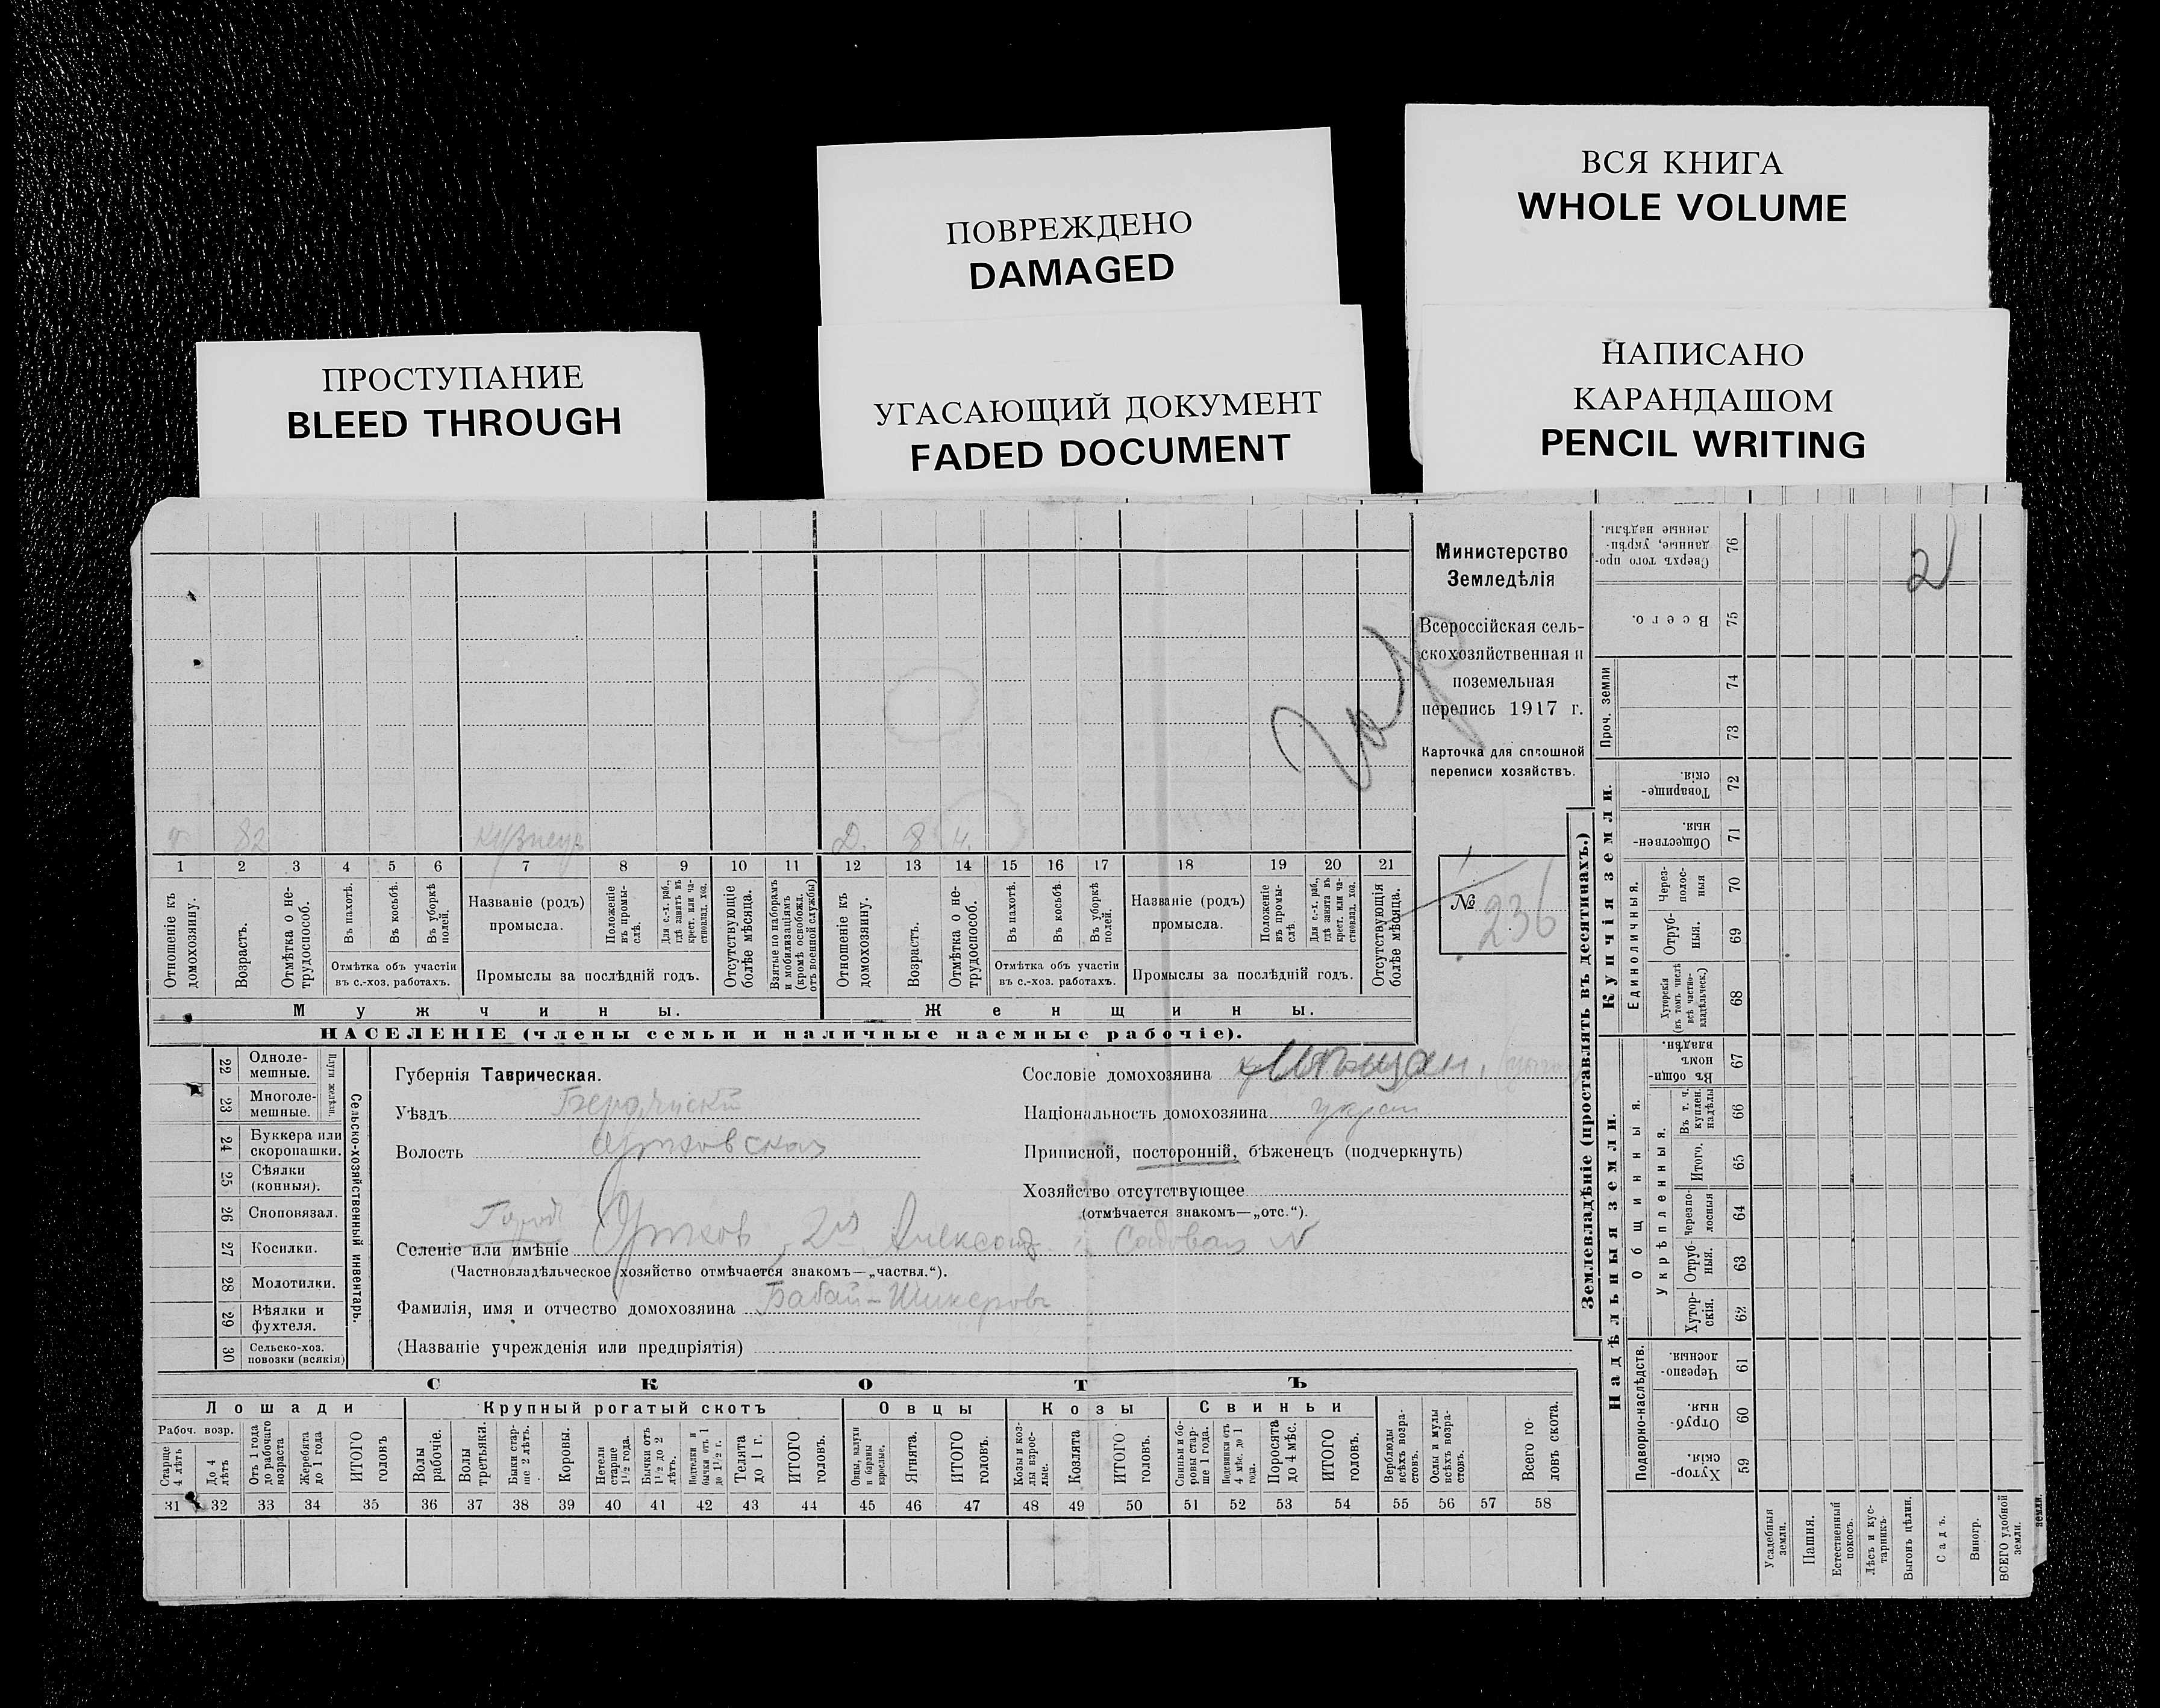 ВСЯ КНИГА
WHOLE VOLUME
ПОВРЕЖДЕНО
DAMAGED
НАПИСАНО
КАРАНДАШОМ
PENCIL WRITING
ПРОСТУПАНИЕ
BLEED THROUGH
УГАСАЮЩИЙ ДОКУМЕНТ
FADED DOCUMENT
Министерство
Земледѣлія
Всероссійская сель-
скохозяйственная и
поземельная
перепись 1917 г.
Карточка для сплошной
переписи хозяйствъ.
№ 236
2
82 Кузнецъ Д. 8 ч.
1 2 3 4 5 6 7 8 9 10 11 12 13 14 15 16 17 18 19 20 21
Отношеніе къ домохозяину.
Возрастъ.
Отмѣтка о не-трудоспособ.
Въ пахотѣ.
Въ косьбѣ.
Въ уборкѣ полей.
Отмѣтка объ участіи
въ с.-хоз. работахъ.
Названіе (родъ)
промысла.
Положеніе въ промы-слѣ.
Для с.-х. раб., гдѣ занятъ въ крест. или ча-стновлад. хоз.
Промыслы за послѣдній годъ.
Отсутствующіе болѣе мѣсяца.
Взятые по наборамъ и мобилизаціямъ (кромѣ освобожд. отъ военной службы)
Отношеніе къ домохозяину.
Возрастъ.
Отмѣтка о не-трудоспособ.
Въ пахотѣ.
Въ косьбѣ.
Въ уборкѣ полей.
Отмѣтка объ участіи
въ с.-хоз. работахъ.
Названіе (родъ)
промысла.
Положеніе въ промы-слѣ.
Для с.-х. раб., гдѣ занята въ крест. или ча-стновлад. хоз.
Промыслы за послѣдній годъ.
Отсутствующія болѣе мѣсяца.
Мужчины. Женщины.
НАСЕЛЕНІЕ (члены семьи и наличные наемные рабочіе).
22 Одноле-мешные.
23 Многоле-мешные.
Плуги желѣзн.
24 Буккера или скоропашки.
25 Сѣялки (конныя).
26 Сноповязал.
27 Косилки.
28 Молотилки.
29 Вѣялки и фухтеля.
30 Сельско-хоз. повозки (всякія)
Сельско-хозяйственный инвентарь.
Губернія Таврическая.
Уѣздъ Бердянскій
Волость Орѣховская
Городъ
Селеніе или имѣніе Орѣховъ, 2я Александ. Садовая N
(Частновладѣльческое хозяйство отмѣчается знакомъ—„частвл.“).
Фамилія, имя и отчество домохозяина Бабай-Шикеровъ
(Названіе учрежденія или предпріятія)
Сословіе домохозяина Мѣщан.
Національность домохозяина
Приписной, посторонній, бѣженецъ (подчеркнуть)
Хозяйство отсутствующее
(отмѣчается знакомъ—„отс.“).
СКОТЪ
Лошади Крупный рогатый скотъ Овцы Козы Свиньи
Рабоч. возр.
Старше 4 лѣтъ
До 4 лѣтъ
Отъ 1 года до рабочаго возраста
Жеребята до 1 года
ИТОГО головъ
Волы рабочіе.
Волы третьяки.
Быки стар-ше 2 лѣтъ.
Коровы.
Нетели старше 1½ года.
Бычки отъ 1½ до 2 лѣтъ.
Нетели и бычки отъ 1 до 1½ г.
Телята до 1 г.
ИТОГО головъ.
Овцы, валухи и бараны взрослые.
Ягнята.
ИТОГО головъ.
Козы и коз-лы взрос-лые.
Козлята
ИТОГО головъ.
Свиньи и бо-ровы стар-ше 1 года.
Подсвинки отъ 4 мѣс. до 1 года.
Поросята до 4 мѣс.
ИТОГО головъ.
Верблюды всѣхъ возра-стовъ.
Ослы и мулы всѣхъ возра-стовъ.
Всего го-ловъ скота.
31 32 33 34 35 36 37 38 39 40 41 42 43 44 45 46 47 48 49 50 51 52 53 54 55 56 57 58
Землевладѣніе (проставлять въ десятинахъ.)
Купчія земли.
Надѣльныя земли.
76 Сверхъ того про-данные, укрѣп-ленные надѣлы.
75 Всего.
Проч. земли
74
73
72 Товарище-скія.
71 Обществен-ныя.
Единоличныя.
70 Через-полос-ныя
69 Отруб-ныя.
68 Хуторскія (въ томъ числѣ всѣ частно-владѣльческ.)
Общинныя.
67 Въ общи-номъ владѣн.
Укрѣпленныя.
66 Въ т. ч. куплен. надѣлы
65 Итого.
64 Черезпо-лосныя
63 Отруб-ныя.
62 Хутор-скія.
Подворно-наслѣдств.
61 Черезпо-лосныя.
60 Отруб-ныя.
59 Хутор-скія.
Усадебныя земли.
Пашня.
Естественный покосъ.
Лѣсъ и кус-тарникъ.
Выгонъ цѣлин.
Садъ.
Виногр.
ВСЕГО удобной земли.
земли.